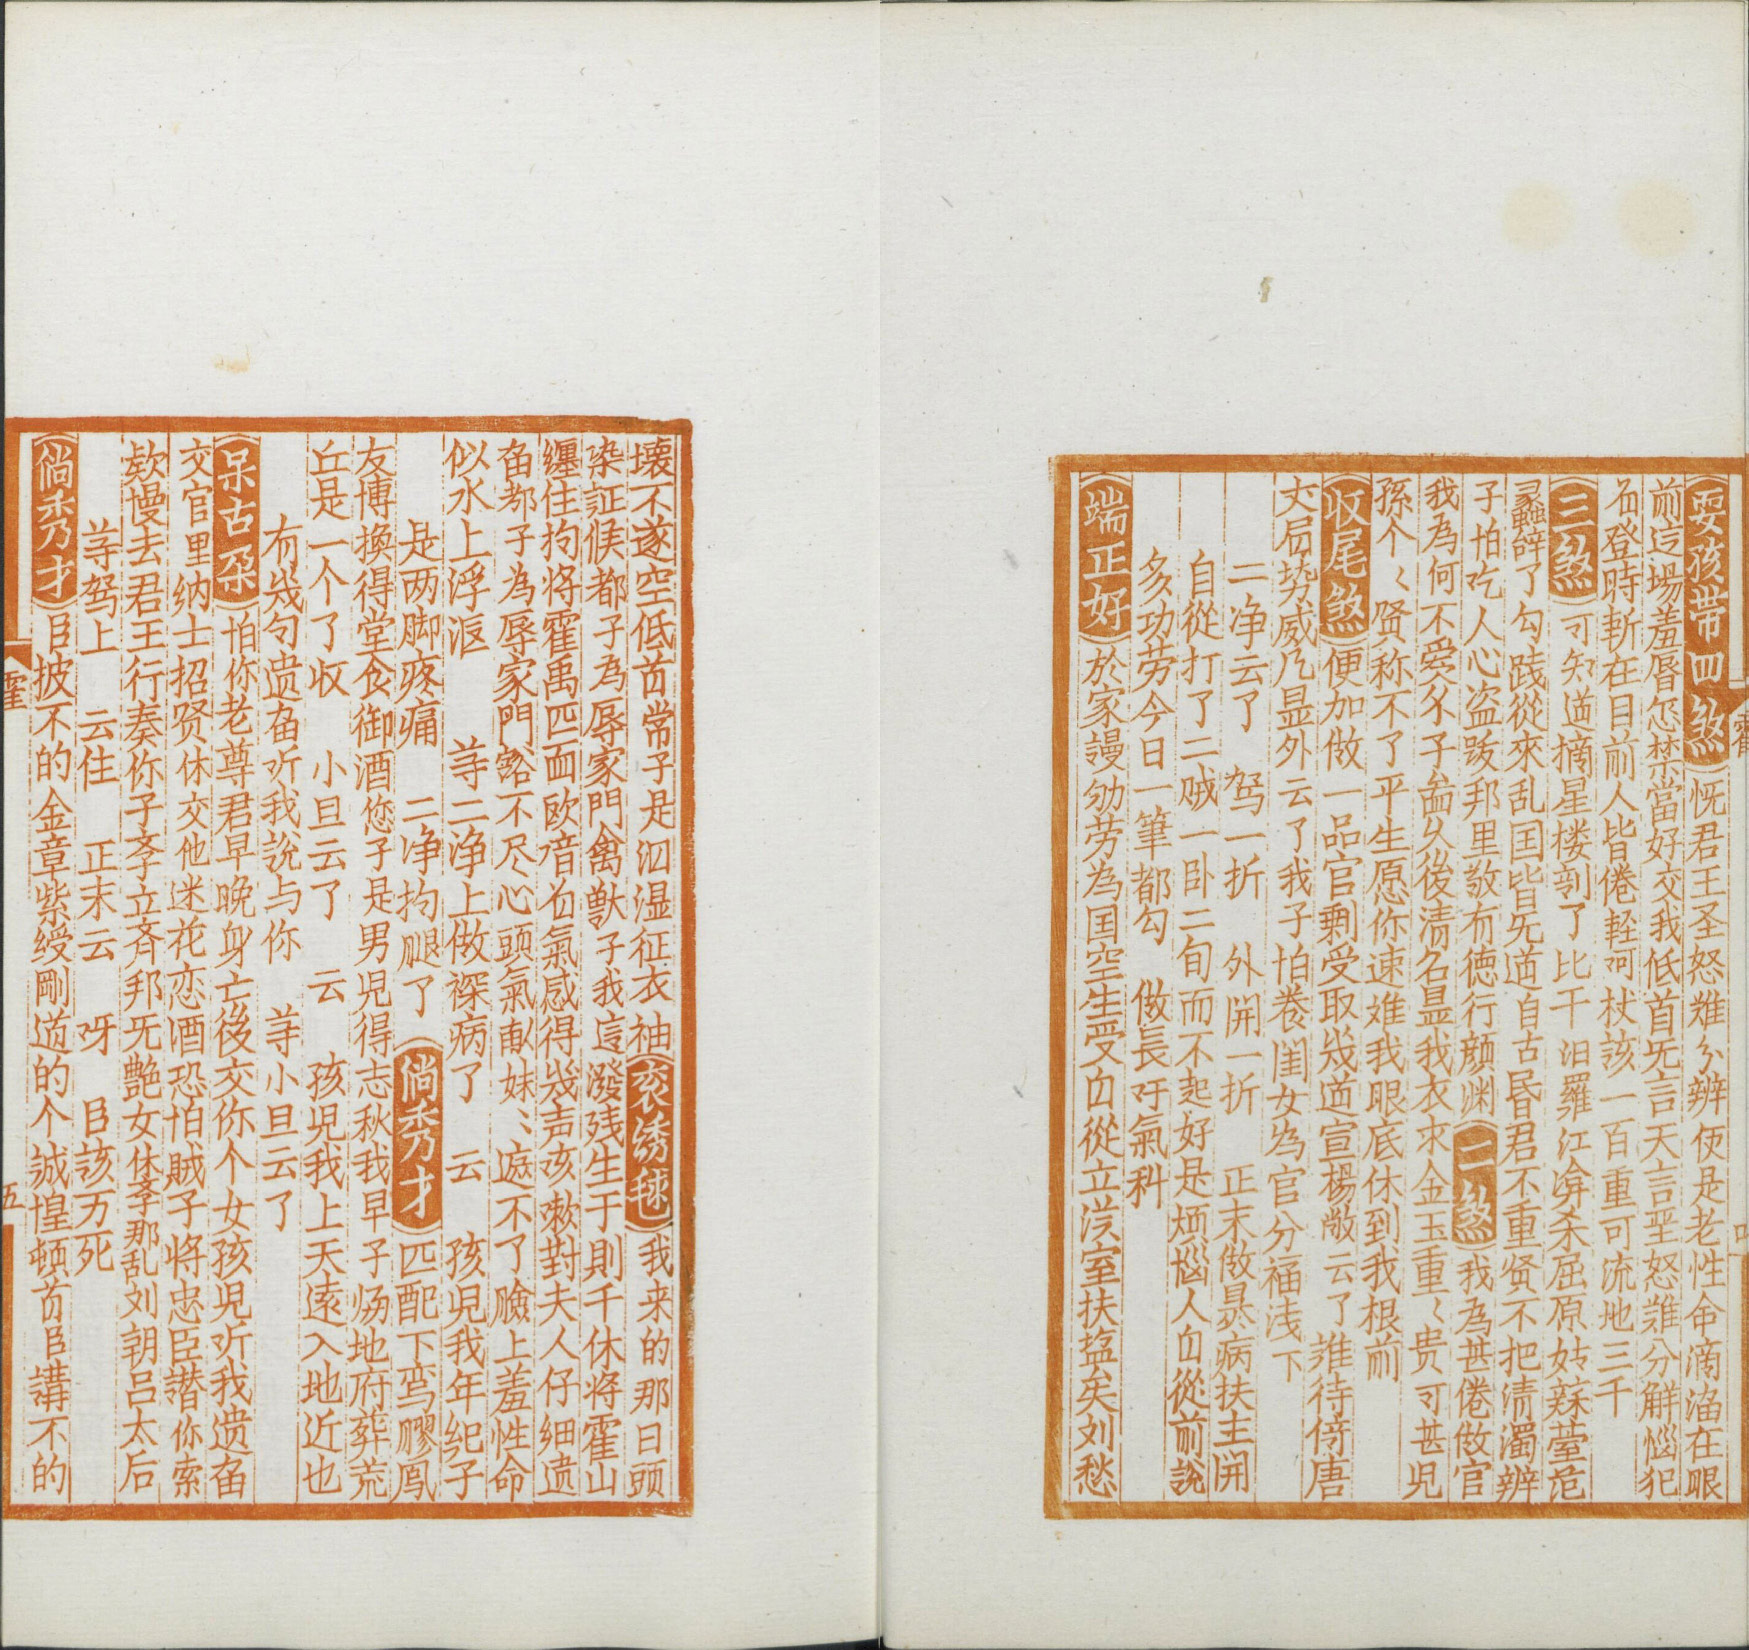 耍孩带四煞怳君王圣怒难分辨便是老性命滴溜在眼
前这場羞辱怎禁當好交我低首无言天言㘴怒难分解惱犯
后登時斬在目前人皆倦軽呵杖該一百重可流地三千
三煞可知道摘星楼剖了比干汨羅江渰杀屈原姑蘇臺范
蠡辞了勾践從來乱国皆无道自古昏君不重贤不把清濁辨
子怕吃人心盗跖邦里敬有德行颜渊二煞我為甚倦做官
我為何不爱分子啚久後清名显我衣求金玉重〻贵可甚児
孫个〻贤称不了平生愿你速难我眼底休到我根前
收尾煞便加做一品官剩受取㡬道宣楊敞云了䧹待倚唐
丈居势威凢显外云了我子怕卷閨女为官分福浅下
二净云了 驾一折 外開一折 正末做㬥病扶主開
自從打了二贼一卧二旬而不起好是烦惱人自從前說
多功劳今日一筆都勾 做長吁氣科
端正好於家謾劬劳為国空生受自從立汉室扶㿽矣刘愁
壊不遂空低首常子是泪湿征衣袖衮绣毬我来的那日頭
染証候都子為辱家門禽獣子我這潑残生于則千休将霍山
纒住㧛将霍禹匹面欧㖣白氣感得㡬声亥嗽對夫人仔細遗
畄都子為辱家門豁不尽心頭氣猷妹〻遮不了臉上羞性命
似水上浮沤 䓁二净上做探病了 云 孩児我年紀子
是两脚疼痛 二净㧛腿了 倘秀才 匹配下鸾膠凤
友博換得堂食御酒您子是男児得志秋我早子㑥地府葬荒
丘是一个了收 小旦云了 云 孩児我上天遠入地近也
有㡬句遗畄听我說与你 䓁小旦云了
呆古朶怕你老尊君早晚身亡後交你个女孩児听我遗畄
交官里纳士招贤休交他迷花恋酒恐怕贼子将忠臣譛你索
欵慢去君王行奏你子斈立斉邦无艶女休斈那乱刘朝吕太后
䓁驾上 云住 正末云 呀 臣該万死
倘秀才臣披不的金章紫绶剛道的个誠惶頓首臣講不的
霍
五